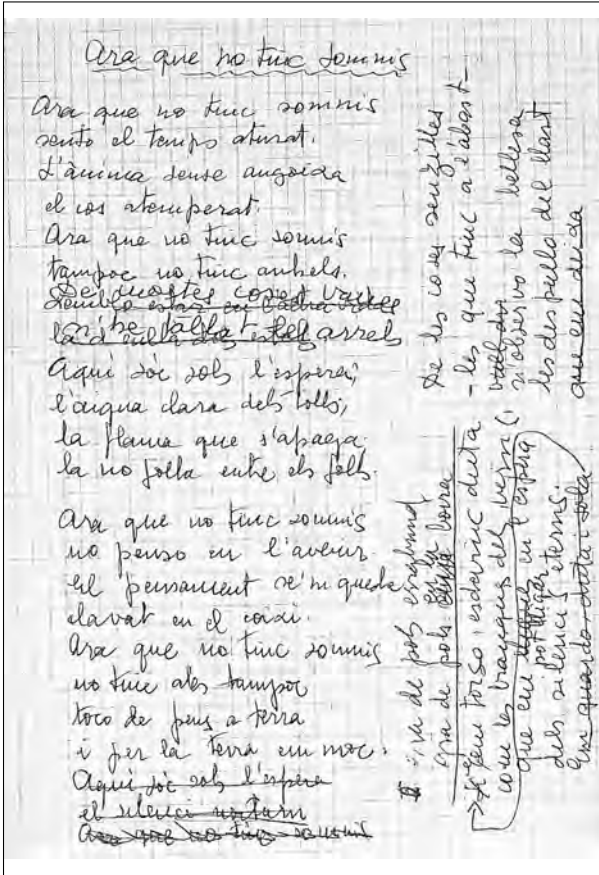 Ara que no tinc somnis
Ara que no tinc somnis
sento el temps aturat.
L'ànima sense angoixa
el cos atemperat.
Ara que no tinc somnis
tampoc no tinc anhels.
De mortes coses
n'he tallat les arrels
Aquí sóc sols l'espera,
l'aigua clara dels tolls,
la flama que s'apaga
la no folla entre els folls.
Ara que no tinc somnis
no penso en l'avenir
el pensament se'm queda
clavat en el coixí.
Ara que no tinc somnis
no tinc ales tampoc
toco de peus a terra
i per la terra em moc.
Aquí sóc sols l'espera
el silenci nocturn
Ara que no tinc somnis
De les coses senzilles
- les que tinc a l'abast -
n'observo la bellesa
les despullo del llast
que em
de pols
de pols boira
torso, esdevinc
com les branques del
que em en l'espera
dels silencis eterns.
Em i sola